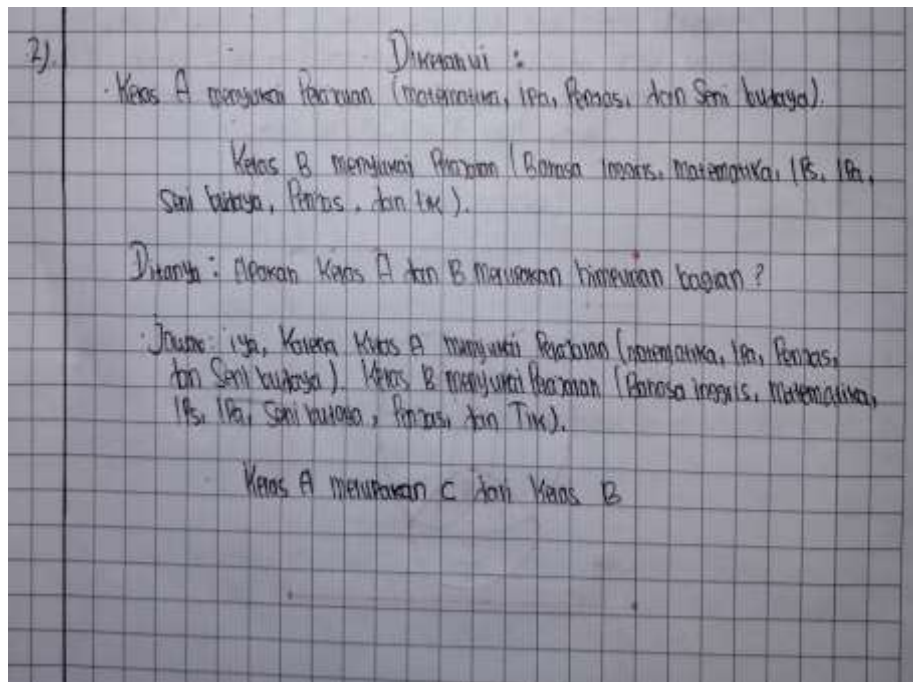 2). Diketahui :
· Kelas A menyukai Pelajaran (matematika, IPA, Penjas, dan Seni budaya).
Kelas B menyukai Pelajaran (Bahasa Inggris, Matematika, IPs, IPA,
Seni budaya, Penjas, dan tik).
Ditanya : Apakah Kelas A dan B Merupakan himpunan bagian ?
Jawab: iya, Karena Kelas A menyukai Pelajaran (matematika, IPA, Penjas,
dan Seni budaya). Kelas B menyukai Pelajaran (Bahasa inggris, Matematika,
IPs, IPA, Seni budaya, Penjas, dan Tik).
Kelas A merupakan C dari Kelas B